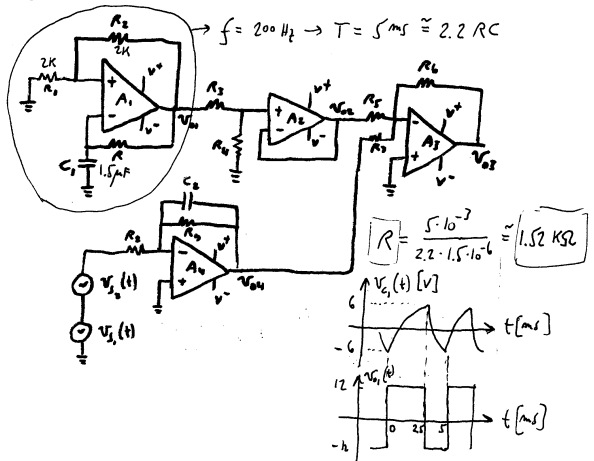 → f = 200 Hz → T = 5 ms ≅ 2.2 RC
R2
2K
2K
R1
+
-
A1
V+
V-
R
C1
1.5μF
Vo1
R3
R4
+
-
A2
V+
V-
Vo2
R5
R7
R6
-
+
A3
V+
V-
Vo3
C2
R9
R8
-
+
A4
V+
V-
Vo4
Vs2(t)
Vs1(t)
R = 5·10^-3 / 2.2·1.5·10^-6 ≅ 1.52 KΩ
Vc1(t) [V]
6
-6
t [ms]
Vo1(t)
12
0 2.5 5
t [ms]